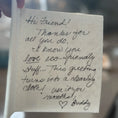 Hi Friend!
Thanks for
all you do,
I know you
love eco-friendly
stuff - This greeting
turns into a cleaning
cloth! Luv ya
Buddy